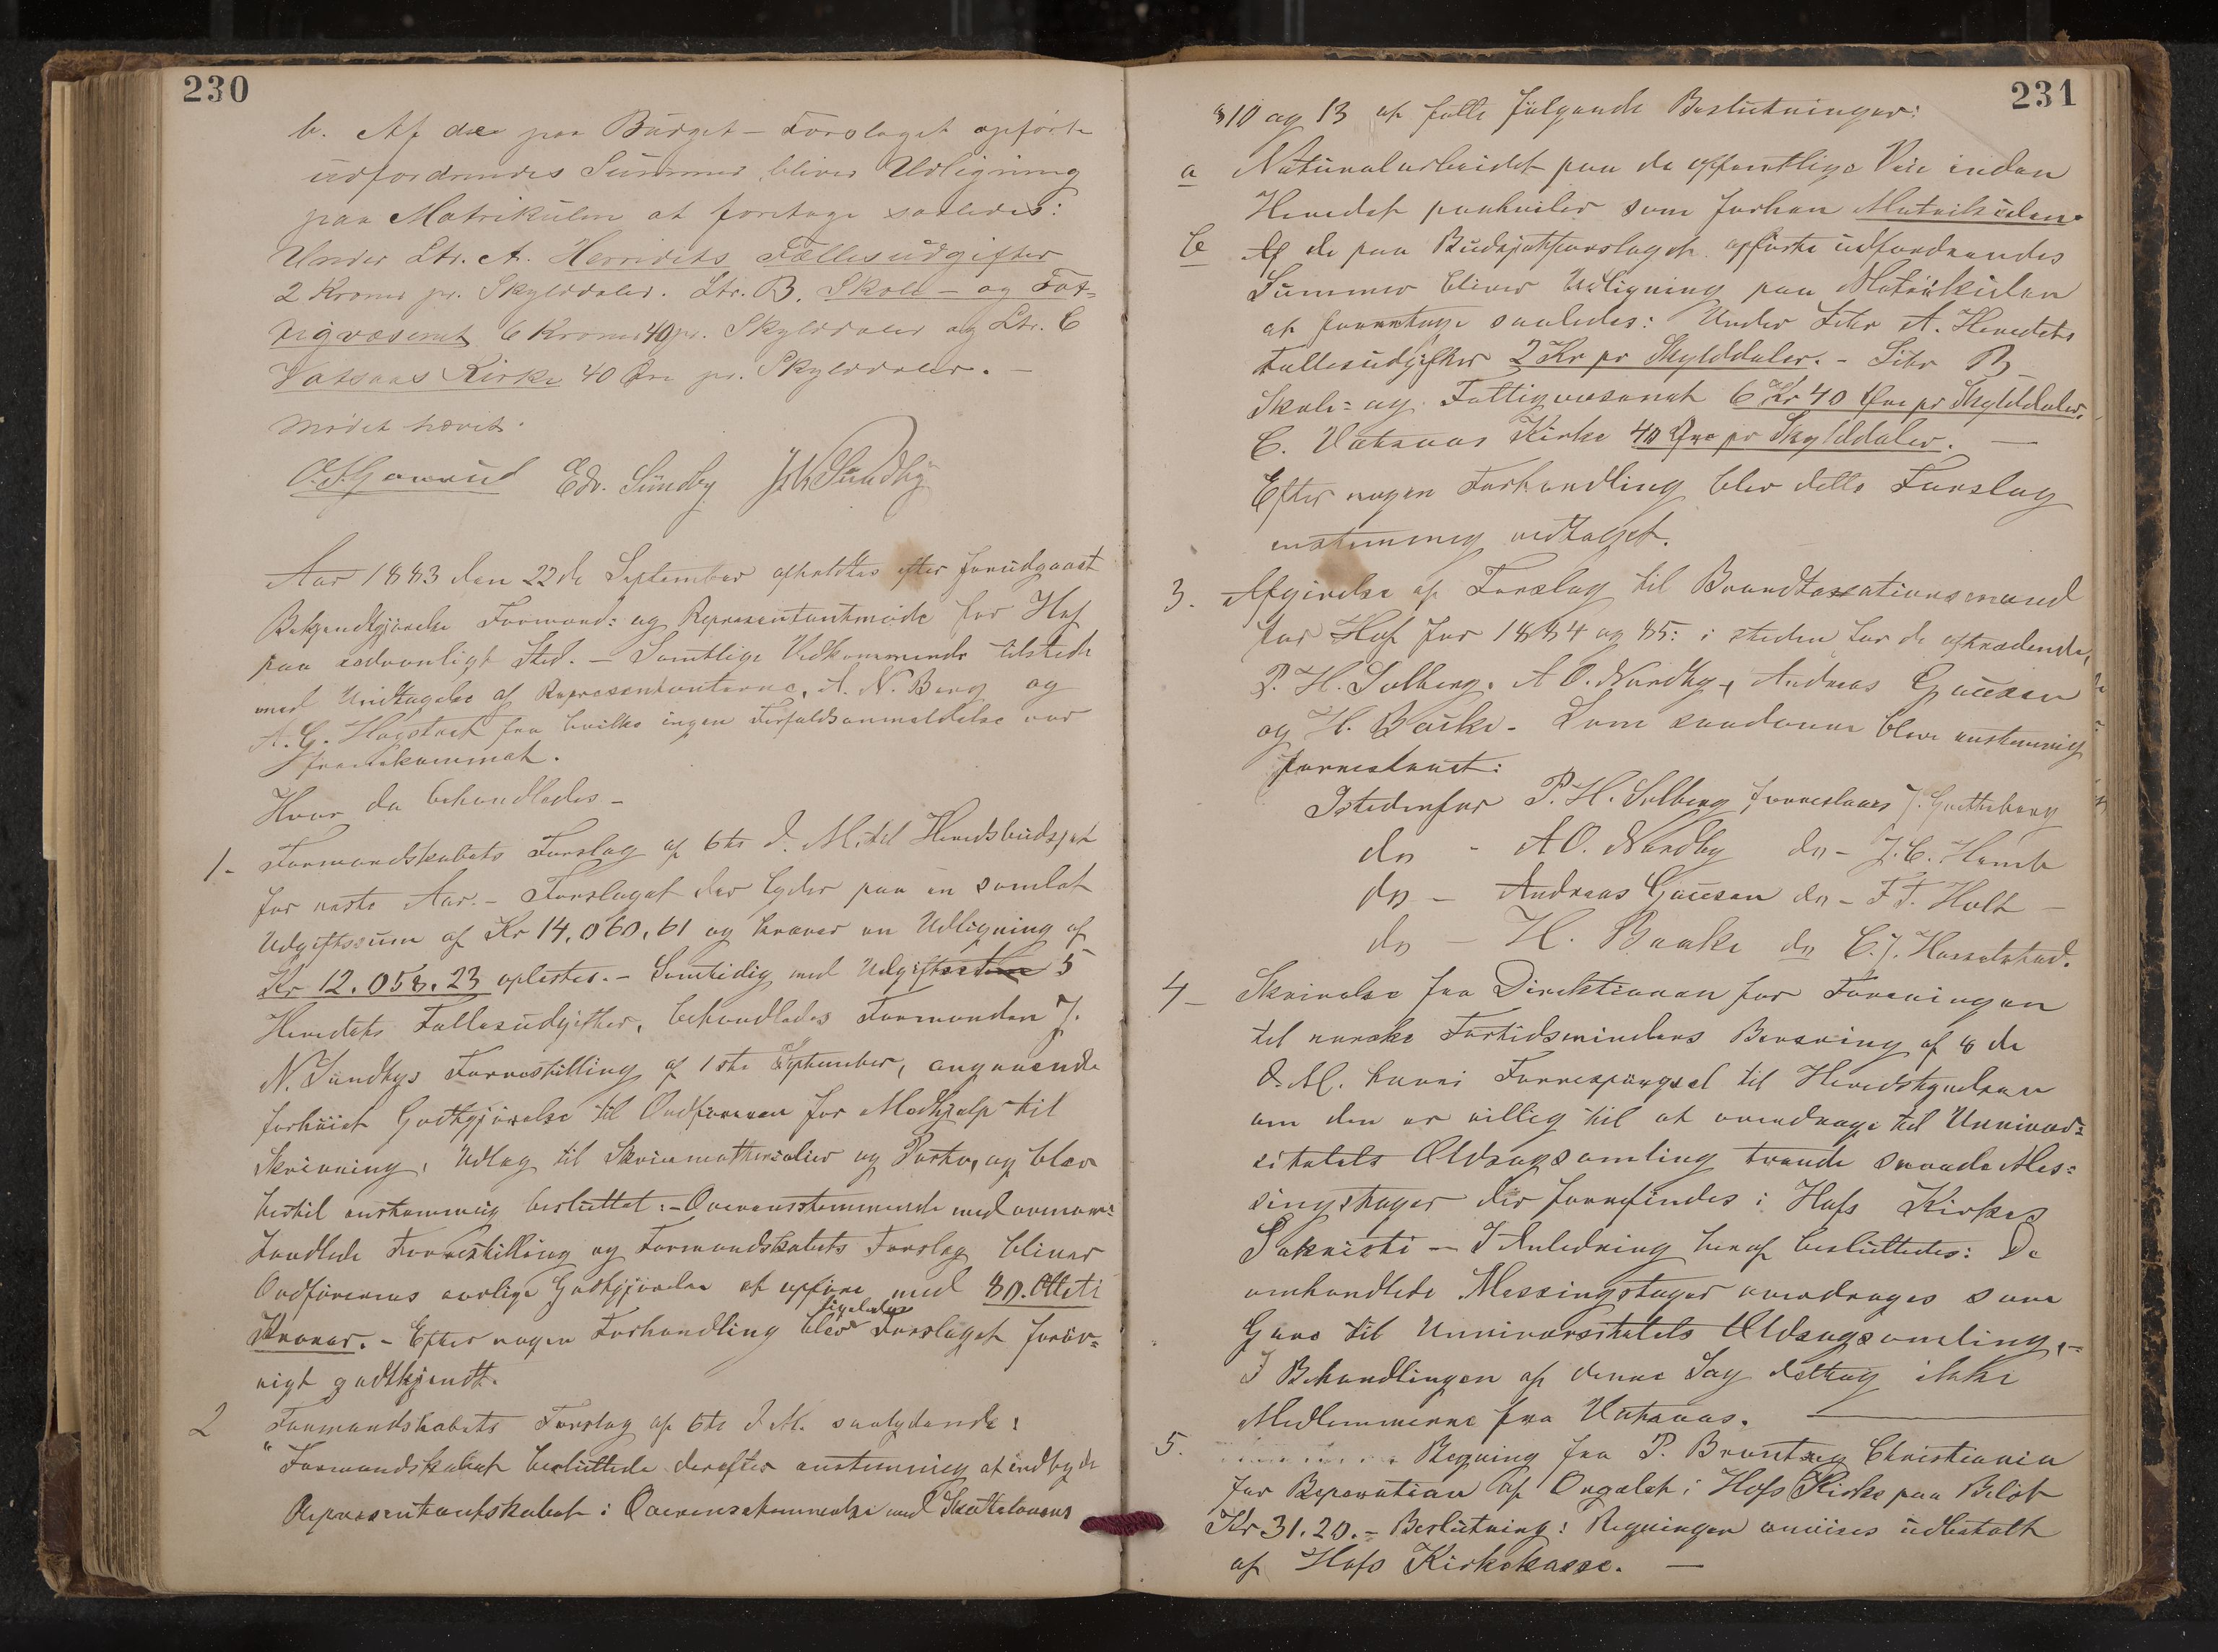 230
b. Af de paa Budget-Forslaget opførte
udfordrendes Summer bliver Udligning
paa Matrikulen at foretage saaledes:
Under Ltr. A. Herredets Fællesudgifter
2 Kroner pr. Skylddaler. Ltr. B. Skole- og Fat-
tigvæsenet 6 Kroner 40 pr. Skylddaler og Ltr. C
Vatsaas Kirke 40 Øre pr. Skylddaler. -
Mødet hævet.
Edv. Sündby
Aar 1883 den 22de September afholdtes efter forudgaaet
Bekjendtgjørelse Formand: og Representantmøde for Hof
paa sædvanligt Sted. - Samtlige Vedkommende tilstede
med Undtagelse af Representanterne, A. N. Berg og
A. G. Hagstad fra hvilke ingen Forfaldsanmeldelse var
fremkommet.
Hvor da behandledes -
1- Formandskabets Forslag af 6te d. M. til Heredsbudsjet
for næste Aar. - Forslaget der lyder paa en samlet
Udgiftssum af Kr 14.060.61 og kræver en Udligning af
Kr 12.058.23 oplæstes. - Samtidig med Udgifts 5
Heredets Fællesudgifter, behandledes Formanden J.
N. Sundbys Forrestilling af 1ste September, angaaende
forhøiet Godtgjørelse til Ordføreren for Medhjælp til
Skrivning, Udlæg til Skrivematherialier og Porto, og blev
hertil enstemmig besluttet: - Overensstemmende med ovenom-
handlede Forrestilling og Formandskabets Forslag bliver
Ordførerens aarlige Godtgjørelse at opføre med 80. Otteti
Kroner. - Efter nogen Forhandling blev ligeledes Forslaget forøv-
rigt godtkjendt.
2 Formandskabets Forslag af 6te d. M. saalydende:
"Formandskabet besluttede derefter enstemmig at indbyde
Representantskabet i Overensstemmelse med Skattelovens
231
§10 og 13 at fatte følgende Beslutninger:
a Naturalarbeidet paa de offentlige Veie inden
Heredet paahviler som forhen Matrikulen.
b Af de paa Budsjetforslaget opførte udfordrendes
Summer bliver Udligning paa Matrikulen
at forretage saaledes: Under Litr A. Heredets
Fællesudgifter 2 Kr pr Skylddaler. - Litr B
Skole= og Fattigvæsenet 6 Kr 40 Øre pr Skylddaler.
C. Vatsaas Kirke 40 Øre pr Skylddaler. -
Efter nogen Forhandling blev dette Forslag
enstemmig vedtaget.
3. Afgivelse af Forslag til Brandtaxationsmænd
for Hof for 1884 og 85: i steden for de aftrædende,
P. H. Solberg, A O. Nordby, Andreas Gausen
og H. Bakke - Som saadanne bleve enstemmig
forreslaaet:
Istedenfor P. H. Solberg, forreslaaes J. Grytteberg
do - A O. Nordby do - J. C.
do - Andreas Gausen do - F F. Holt -
do - H. Bakke do C. J. Hasselstad.
4- Skrivelse fra Direktionen for Foreningen
til norske Fortidsminders Bevaring af 8 de
d. M. hvori Forrespørgsel til Heredstyrelsen
om den er villig til at overdrage til Univer=
sitetets Oldsagsamling tvende svære Mes=
singstager der forrefindes i Hofs Kirkes
Sakristi - I Anledning heraf besluttedes: De
omhandlede Messingstager overdrages som
Gave til Universitetets Oldsagsamling, -
I Behandlingen af denne Sag deltog ikke
Medlemmerne fra Vatsaas.
5. Regning fra P. Brantzeg Christiania
for Reparation af Orgelet i Hofs Kirke paa Beløb
Kr 31.20. - Beslutning: Regningen anvises udbetalt
af Hofs Kirkekasse. -